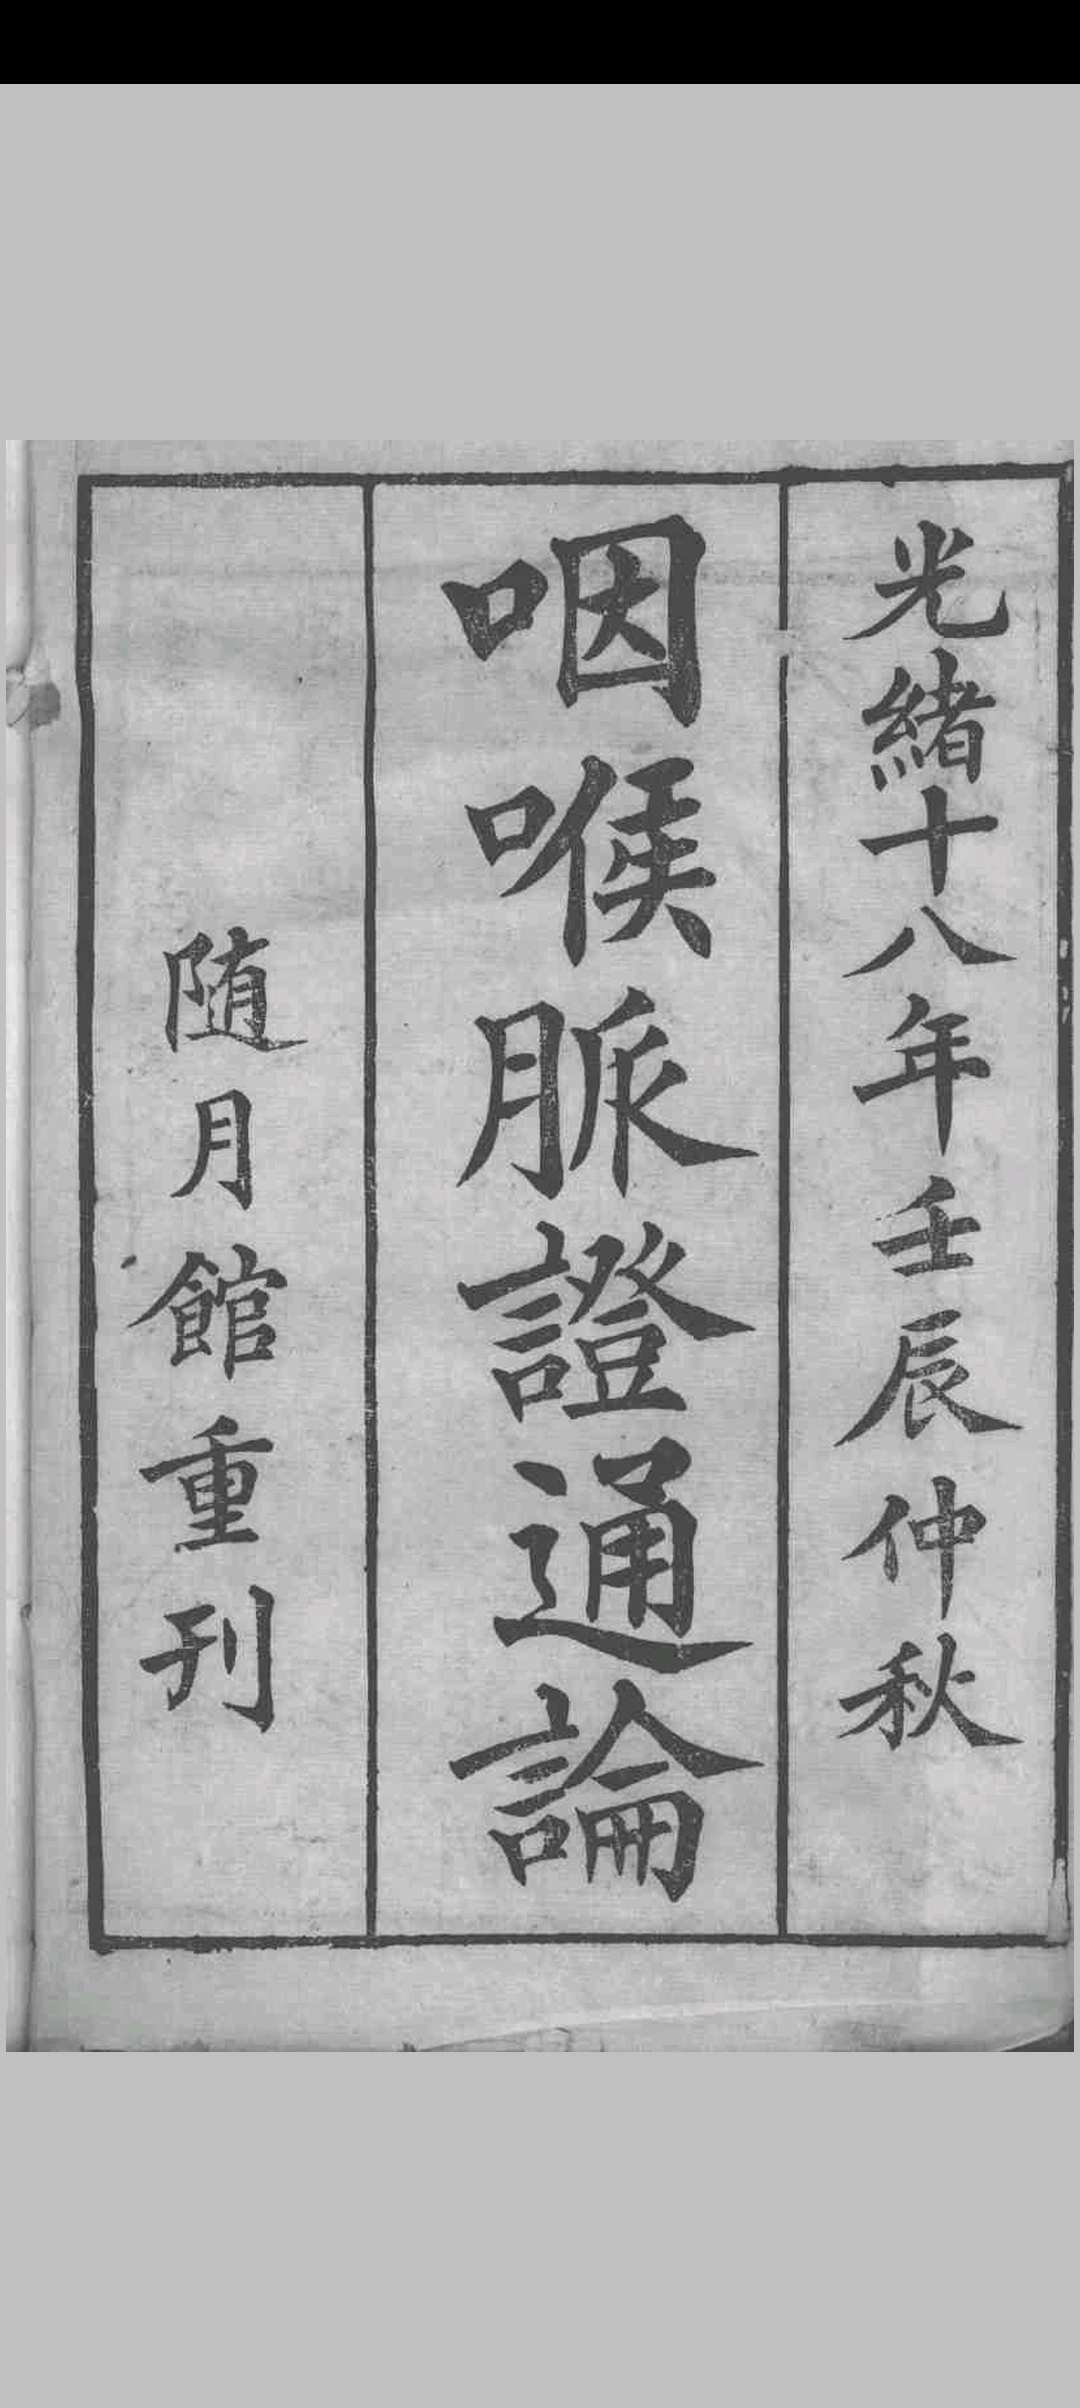 光緒十八年壬辰仲秋
咽喉脈證通論
随月館重刊